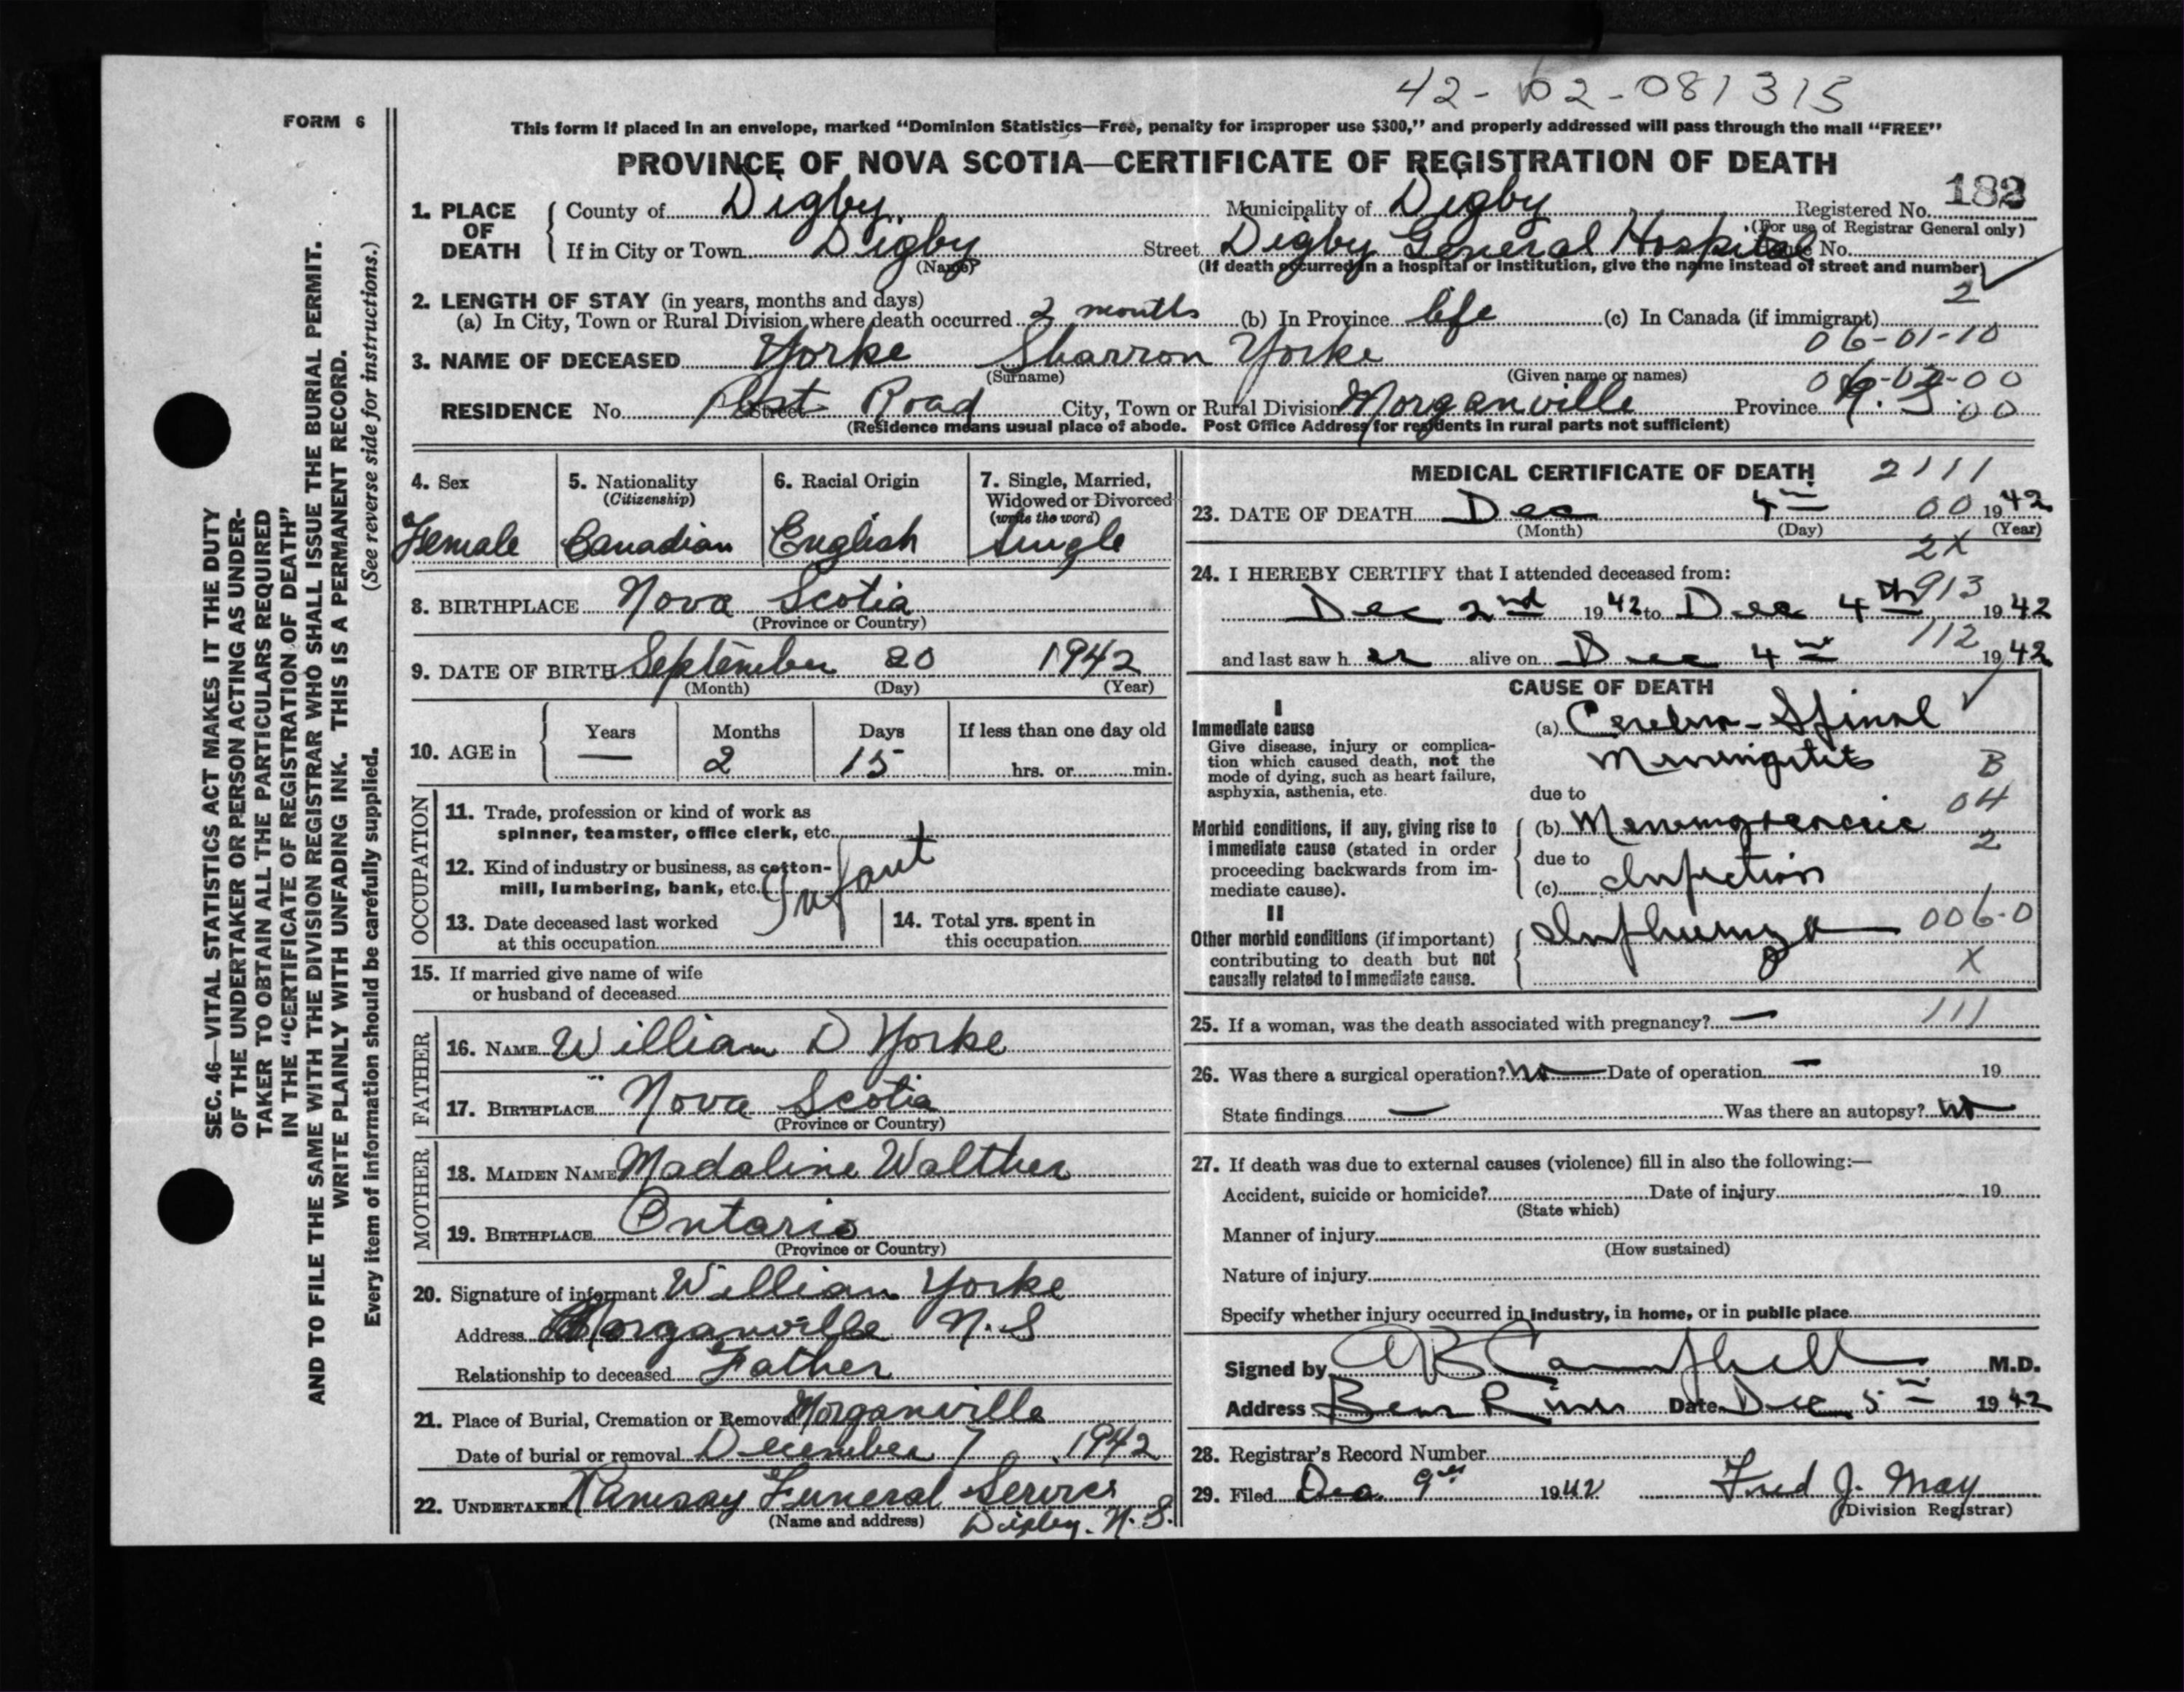 42-02-081315
FORM 6
This form if placed in an envelope, marked “Dominion Statistics—Free, penalty for improper use $300,” and properly addressed will pass through the mail “FREE”
PROVINCE OF NOVA SCOTIA—CERTIFICATE OF REGISTRATION OF DEATH
SEC. 46—VITAL STATISTICS ACT MAKES IT THE DUTY
OF THE UNDERTAKER OR PERSON ACTING AS UNDER-
TAKER TO OBTAIN ALL THE PARTICULARS REQUIRED
IN THE “CERTIFICATE OF REGISTRATION OF DEATH”
AND TO FILE THE SAME WITH THE DIVISION REGISTRAR WHO SHALL ISSUE THE BURIAL PERMIT.
WRITE PLAINLY WITH UNFADING INK. THIS IS A PERMANENT RECORD.
Every item of information should be carefully supplied. (See reverse side for instructions.)
1. PLACE OF DEATH
County of Digby. Municipality of Digby Registered No. 182
(For use of Registrar General only)
If in City or Town Digby Street Digby General Hospital No.
(Name) (If death occurred in a hospital or institution, give the name instead of street and number)
2. LENGTH OF STAY (in years, months and days) 2
(a) In City, Town or Rural Division where death occurred 2 months (b) In Province life (c) In Canada (if immigrant)
06-01-10
3. NAME OF DECEASED Yorke Sharron Yorke
(Surname) (Given name or names)
RESIDENCE No. Post Street Road City, Town or Rural Division Morganville Province N.S. 00
(Residence means usual place of abode. Post Office Address for residents in rural parts not sufficient)
4. Sex
Female
5. Nationality
(Citizenship)
Canadian
6. Racial Origin
English
7. Single, Married,
Widowed or Divorced
(write the word)
Single
8. BIRTHPLACE Nova Scotia
(Province or Country)
9. DATE OF BIRTH September 20 1942
(Month) (Day) (Year)
10. AGE in
Years Months Days If less than one day old
— 2 15 hrs. or min.
OCCUPATION
11. Trade, profession or kind of work as
spinner, teamster, office clerk, etc.
12. Kind of industry or business, as cotton-
mill, lumbering, bank, etc. Infant
13. Date deceased last worked
at this occupation
14. Total yrs. spent in
this occupation
15. If married give name of wife
or husband of deceased
FATHER
16. NAME William D Yorke
17. BIRTHPLACE Nova Scotia
(Province or Country)
MOTHER
18. MAIDEN NAME Madaline Walther
19. BIRTHPLACE Ontario
(Province or Country)
20. Signature of informant William Yorke
Address Morganville N.S
Relationship to deceased Father
21. Place of Burial, Cremation or Removal Morganville
Date of burial or removal December 7 1942
22. UNDERTAKER Ramsay Funeral Service
(Name and address) Digby. N.S.
MEDICAL CERTIFICATE OF DEATH 2111
23. DATE OF DEATH Dec 4th 00 1942
(Month) (Day) (Year)
2X
24. I HEREBY CERTIFY that I attended deceased from:
913
Dec 2nd 1942 to Dec 4th 1942
112
and last saw her alive on Dec 4th 1942
CAUSE OF DEATH
I
Immediate cause
Give disease, injury or complica-
tion which caused death, not the
mode of dying, such as heart failure,
asphyxia, asthenia, etc.
(a) Cerebro-Spinal
Meningitis B
due to
04
Morbid conditions, if any, giving rise to
immediate cause (stated in order
proceeding backwards from im-
mediate cause).
(b) Meningococcic
2
due to
(c) Infection
II
Other morbid conditions (if important)
contributing to death but not
causally related to immediate cause.
Influenza 006-0
X
25. If a woman, was the death associated with pregnancy? — 111
26. Was there a surgical operation? No Date of operation — 19
State findings — Was there an autopsy? No
27. If death was due to external causes (violence) fill in also the following:—
Accident, suicide or homicide? Date of injury 19
(State which)
Manner of injury
(How sustained)
Nature of injury
Specify whether injury occurred in industry, in home, or in public place
Signed by AB Campbell M.D.
Address Bear River Date Dec 5th 1942
28. Registrar's Record Number
29. Filed Dec. 9th 1942 Fred J. May
(Division Registrar)